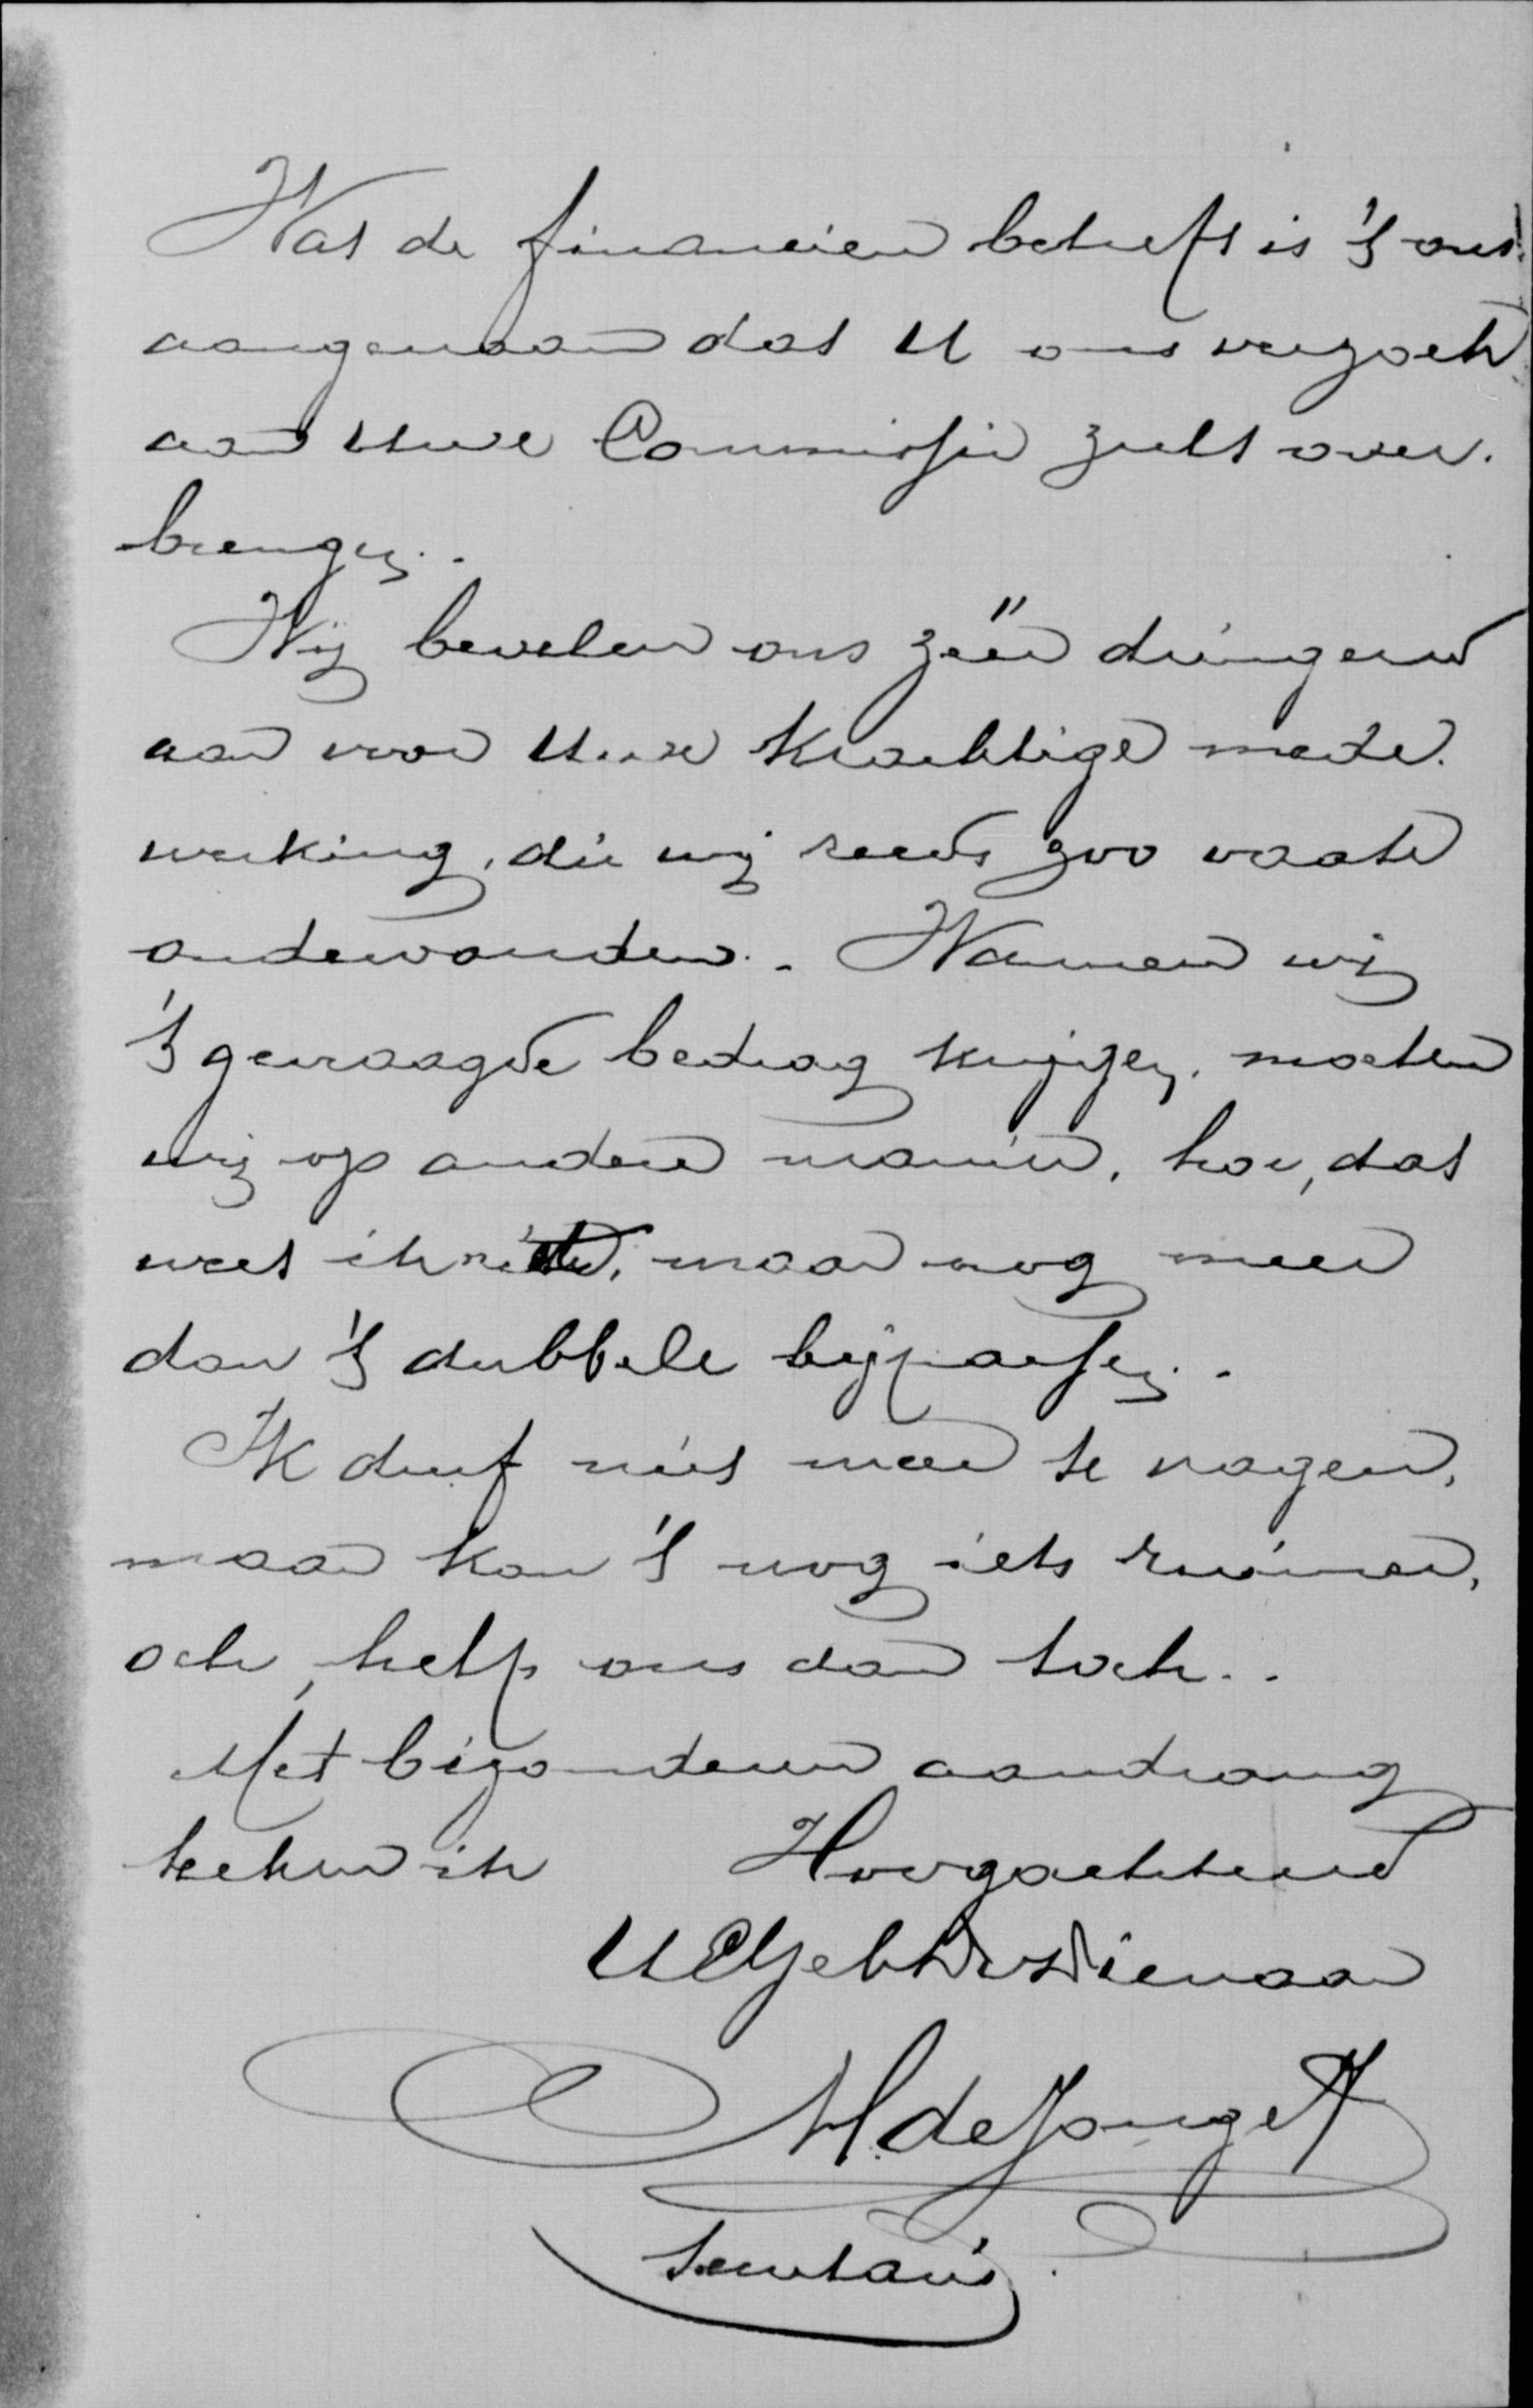 Wat de financiën betreft is 't ons
aangenaam dat U ons verzoek
aan Uwe Commissie zult over-
brengen.
Wij bevelen ons zéér dringend
aan voor Uwe krachtige mede-
werking, die wij reeds zoo vaak
ondervonden. Wanneer wij
't gevraagde bedrag krijgen, moeten
wij op andere manier, hoe, dat
weet ik niet, maar nog meer
dan 't dubbele bijpassen.
Ik durf niet meer te vragen,
maar kan 't nog iets ruimer,
och, help ons dan toch.
Met bizonderen aandrang
teeken ik Hoogachtend
UEdGeb Dw Dienaar
H de Jonge
Secretaris.